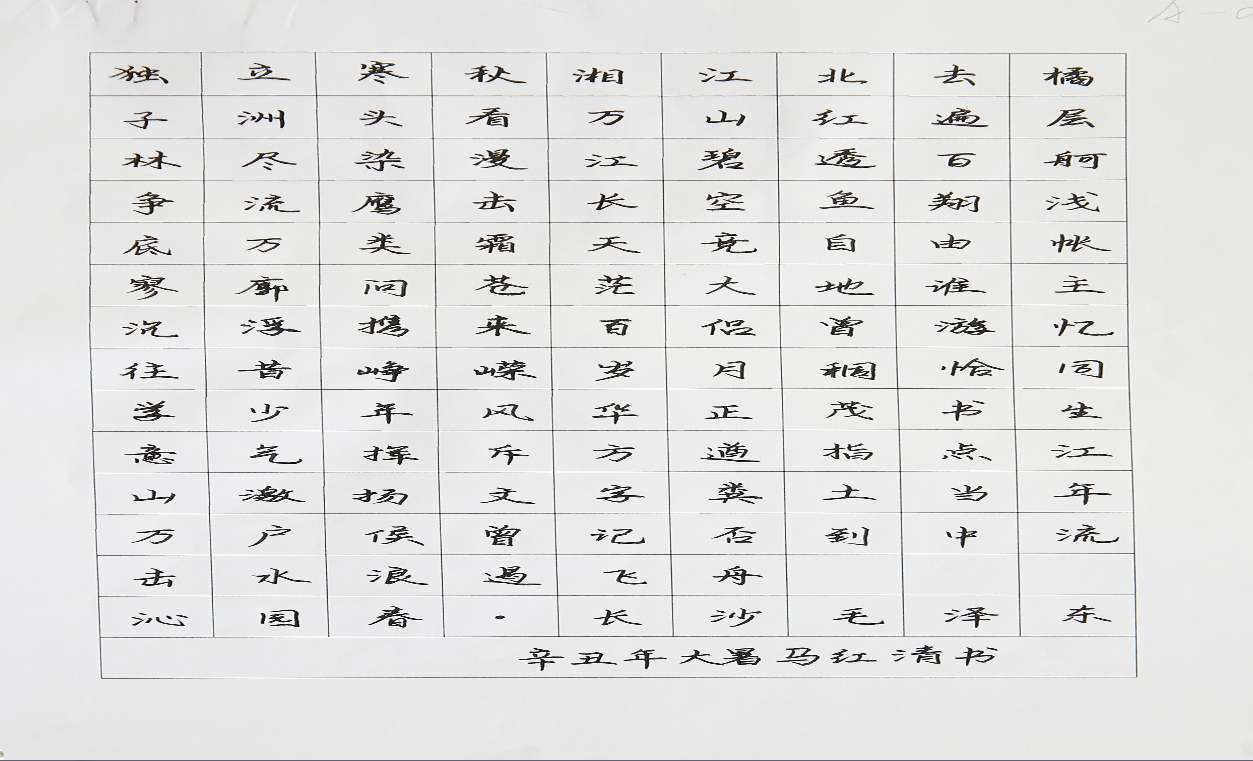 独立寒秋湘江北去橘
子洲头看万山红遍层
林尽染漫江碧透百舸
争流鹰击长空鱼翔浅
底万类霜天竞自由怅
寥廓问苍茫大地谁主
沉浮携来百侣曾游忆
往昔峥嵘岁月稠恰同
学少年风华正茂书生
意气挥斥方遒指点江
山激扬文字粪土当年
万户侯曾记否到中流
击水浪遏飞舟
沁园春·长沙毛泽东
辛丑年大暑马红清书